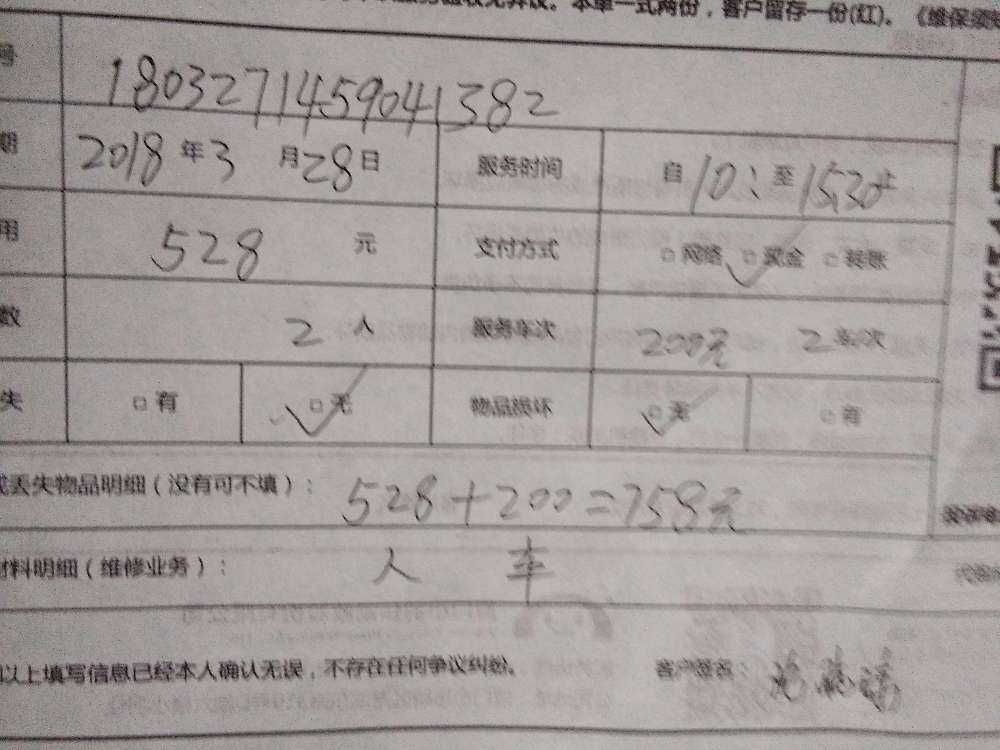 服务验收无异议。本单一式两份，客户留存一份(红)。《维保须
号 180327145904 1382
期 2018年3月28日 服务时间 自10：至15:30止
用 528 元 支付方式 □网络 □现金 □转账
数 2人 服务车次 200元 2车次
失 □有 □无 物品损坏 □无 □有
或丢失物品明细（没有可不填）： 528+200=758元
材料明细（维修业务）： 人 车
以上填写信息已经本人确认无误，不存在任何争议纠纷。 客户签名：